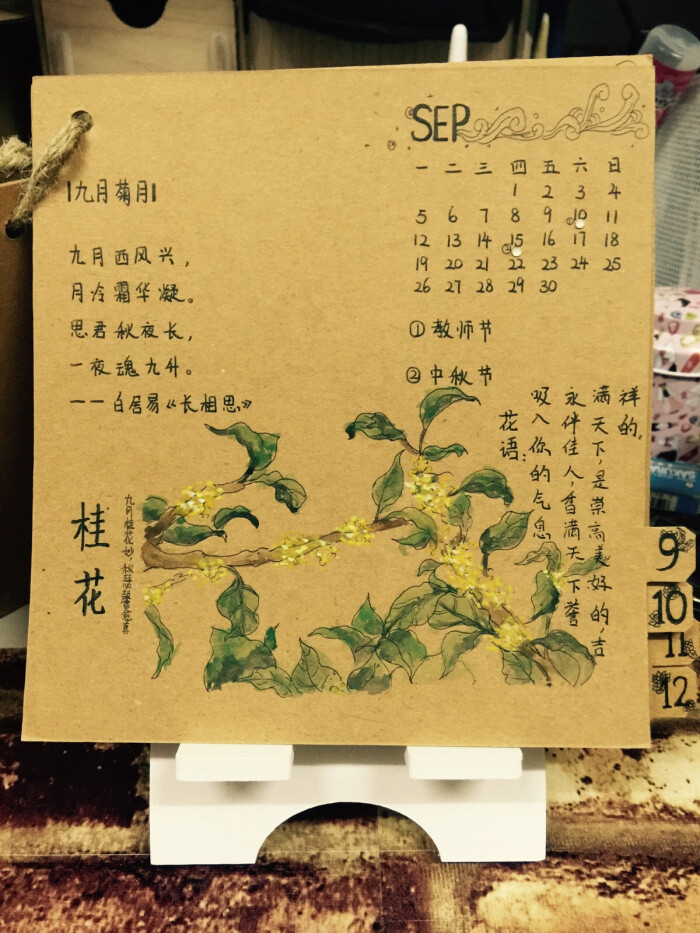 SEP
一 二 三 四 五 六 日
1 2 3 4
5 6 7 8 9 ①10 11
12 13 14 ②15 16 17 18
19 20 21 22 23 24 25
26 27 28 29 30
①教师节
②中秋节
|九月菊月|
九月西风兴，
月冷霜华凝。
思君秋夜长，
一夜魂九升。
——白居易《长相思》
花语：
吸入你的气息
永伴佳人，香满天下誉
满天下，是崇高美好的，吉
祥的。
桂花
9
10
11
12